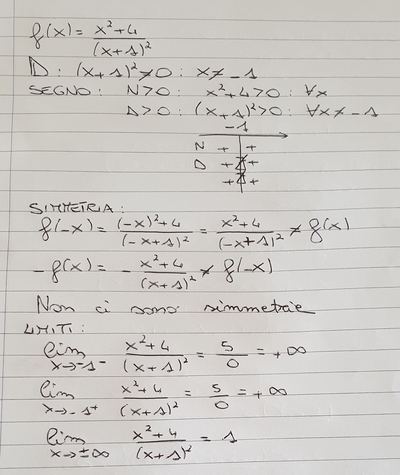 f(x) = x²+4 / (x+1)²
D : (x+1)² ≠ 0 : x ≠ -1
SEGNO : N>0 : x²+4>0 : ∀x
D>0 : (x+1)²>0 : ∀x ≠ -1
-1
N + +
D + +
+ +
SIMMETRIA :
f(-x) = (-x)²+4 / (-x+1)² = x²+4 / (-x+1)² ≠ f(x)
-f(x) = - x²+4 / (x+1)² ≠ f(-x)
Non ci sono simmetrie
LIMITI :
lim x→-1⁻ x²+4 / (x+1)² = 5/0 = +∞
lim x→-1⁺ x²+4 / (x+1)² = 5/0 = +∞
lim x→±∞ x²+4 / (x+1)² = 1